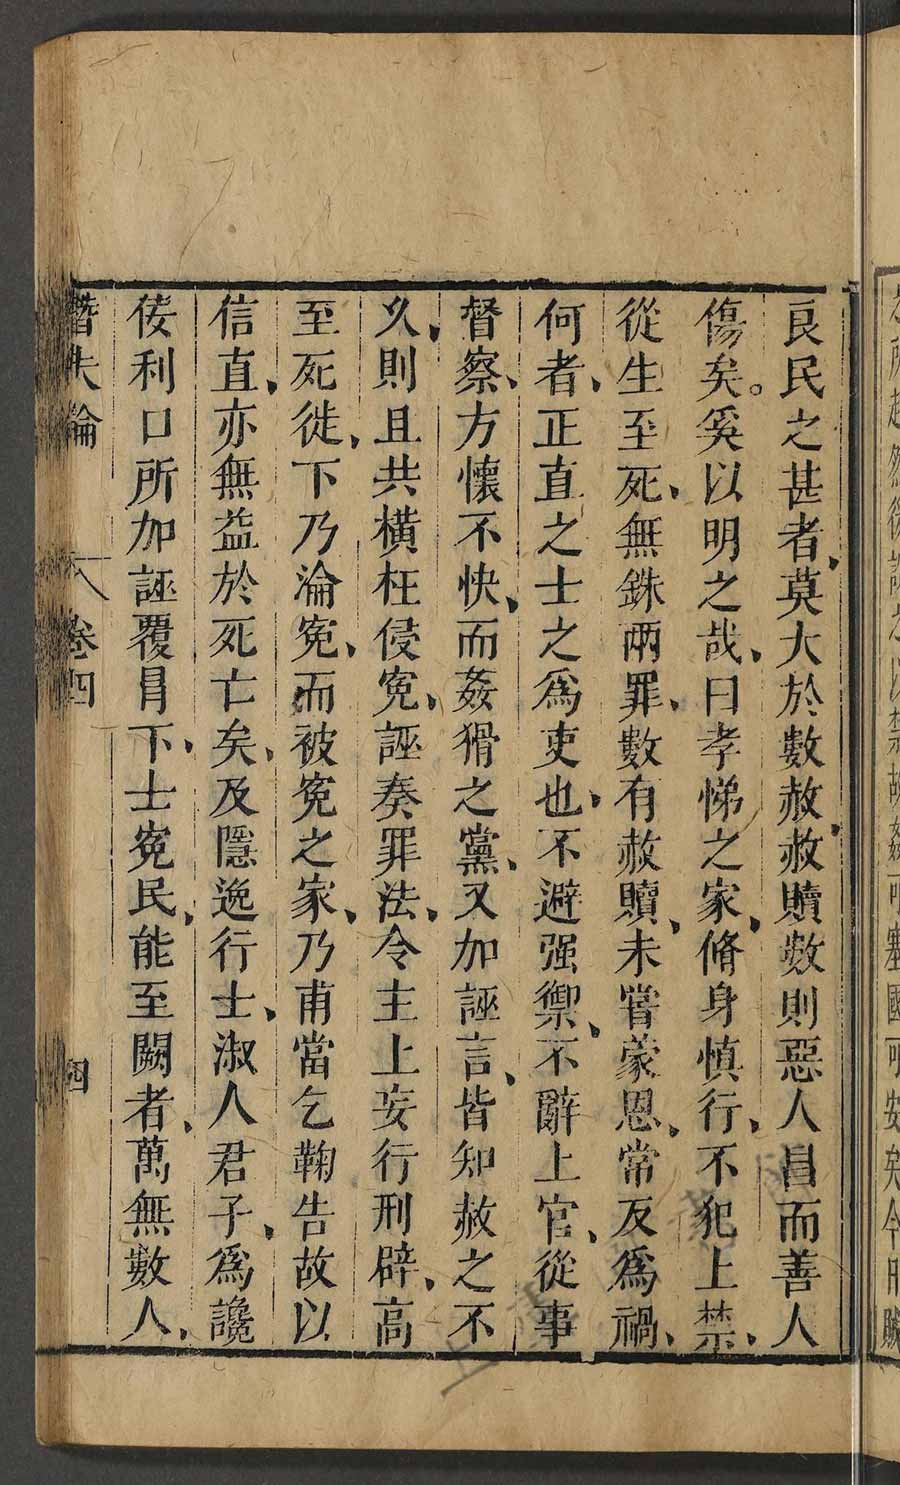 良民之甚者莫大於數赦赦贖數則惡人昌而善人
傷矣奚以明之哉曰孝悌之家脩身慎行不犯上禁
從生至死無銖兩罪數有赦贖未嘗蒙恩常反為禍
何者正直之士之為吏也不避强禦不辭上官從事
督察方懷不快而姦猾之黨又加誣言皆知赦之不
久則且共橫枉侵冤誣奏罪法令主上妄行刑辟高
至死徙下乃淪冤而被冤之家乃甫當乞鞠告故以
信直亦無益於死亡矣及隱逸行士淑人君子為讒
佞利口所加誣覆冒下士冤民能至闕者萬無數人
潛夫論 卷四 四